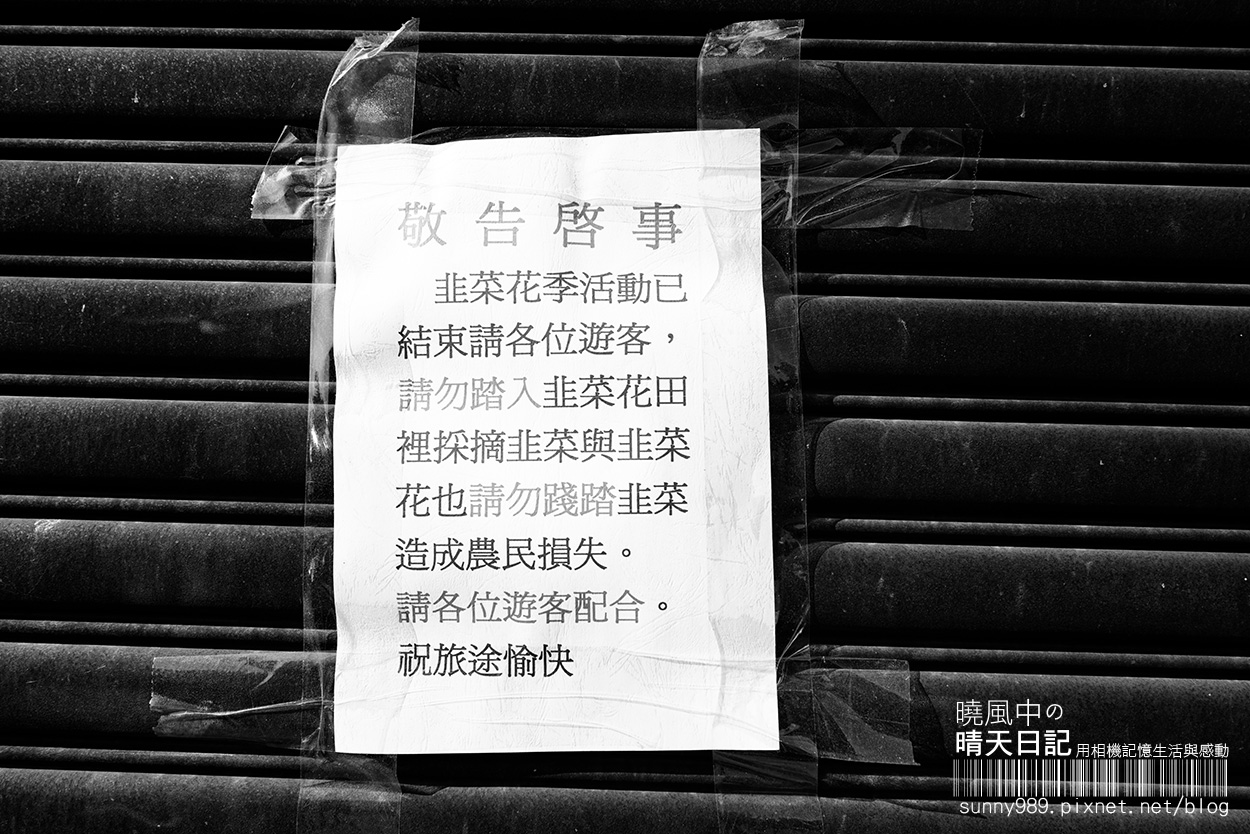 敬告啓事
韭菜花季活動已
結束請各位遊客，
請勿踏入韭菜花田
裡採摘韭菜與韭菜
花也請勿踐踏韭菜
造成農民損失。
請各位遊客配合。
祝旅途愉快
曉風中の
晴天日記 用相機記憶生活與感動
sunny989.pixnet.net/blog